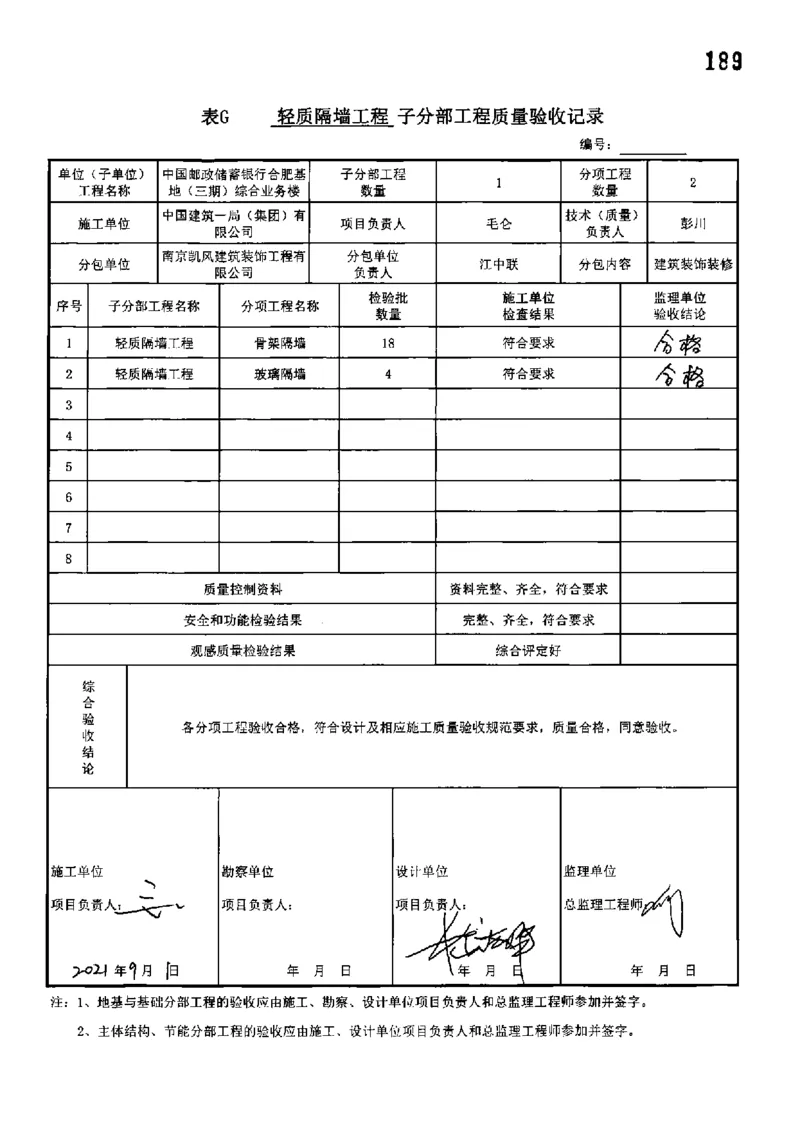 189
表G 轻质隔墙工程 子分部工程质量验收记录
编号：
单位（子单位）工程名称 中国邮政储蓄银行合肥基地（三期）综合业务楼 子分部工程数量 1 分项工程数量 2
施工单位 中国建筑一局（集团）有限公司 项目负责人 毛仑 技术（质量）负责人 彭川
分包单位 南京凯风建筑装饰工程有限公司 分包单位负责人 江中联 分包内容 建筑装饰装修
序号 子分部工程名称 分项工程名称 检验批数量 施工单位检查结果 监理单位验收结论
1 轻质隔墙工程 骨架隔墙 18 符合要求 合格
2 轻质隔墙工程 玻璃隔墙 4 符合要求 合格
3
4
5
6
7
8
质量控制资料 资料完整、齐全，符合要求
安全和功能检验结果 完整、齐全，符合要求
观感质量检验结果 综合评定好
综合验收结论 各分项工程验收合格，符合设计及相应施工质量验收规范要求，质量合格，同意验收。
施工单位 勘察单位 设计单位 监理单位
项目负责人： 项目负责人： 项目负责人： 总监理工程师：
2021年9月1日 年 月 日 年 月 日 年 月 日
注：1、地基与基础分部工程的验收应由施工、勘察、设计单位项目负责人和总监理工程师参加并签字。
2、主体结构、节能分部工程的验收应由施工、设计单位项目负责人和总监理工程师参加并签字。